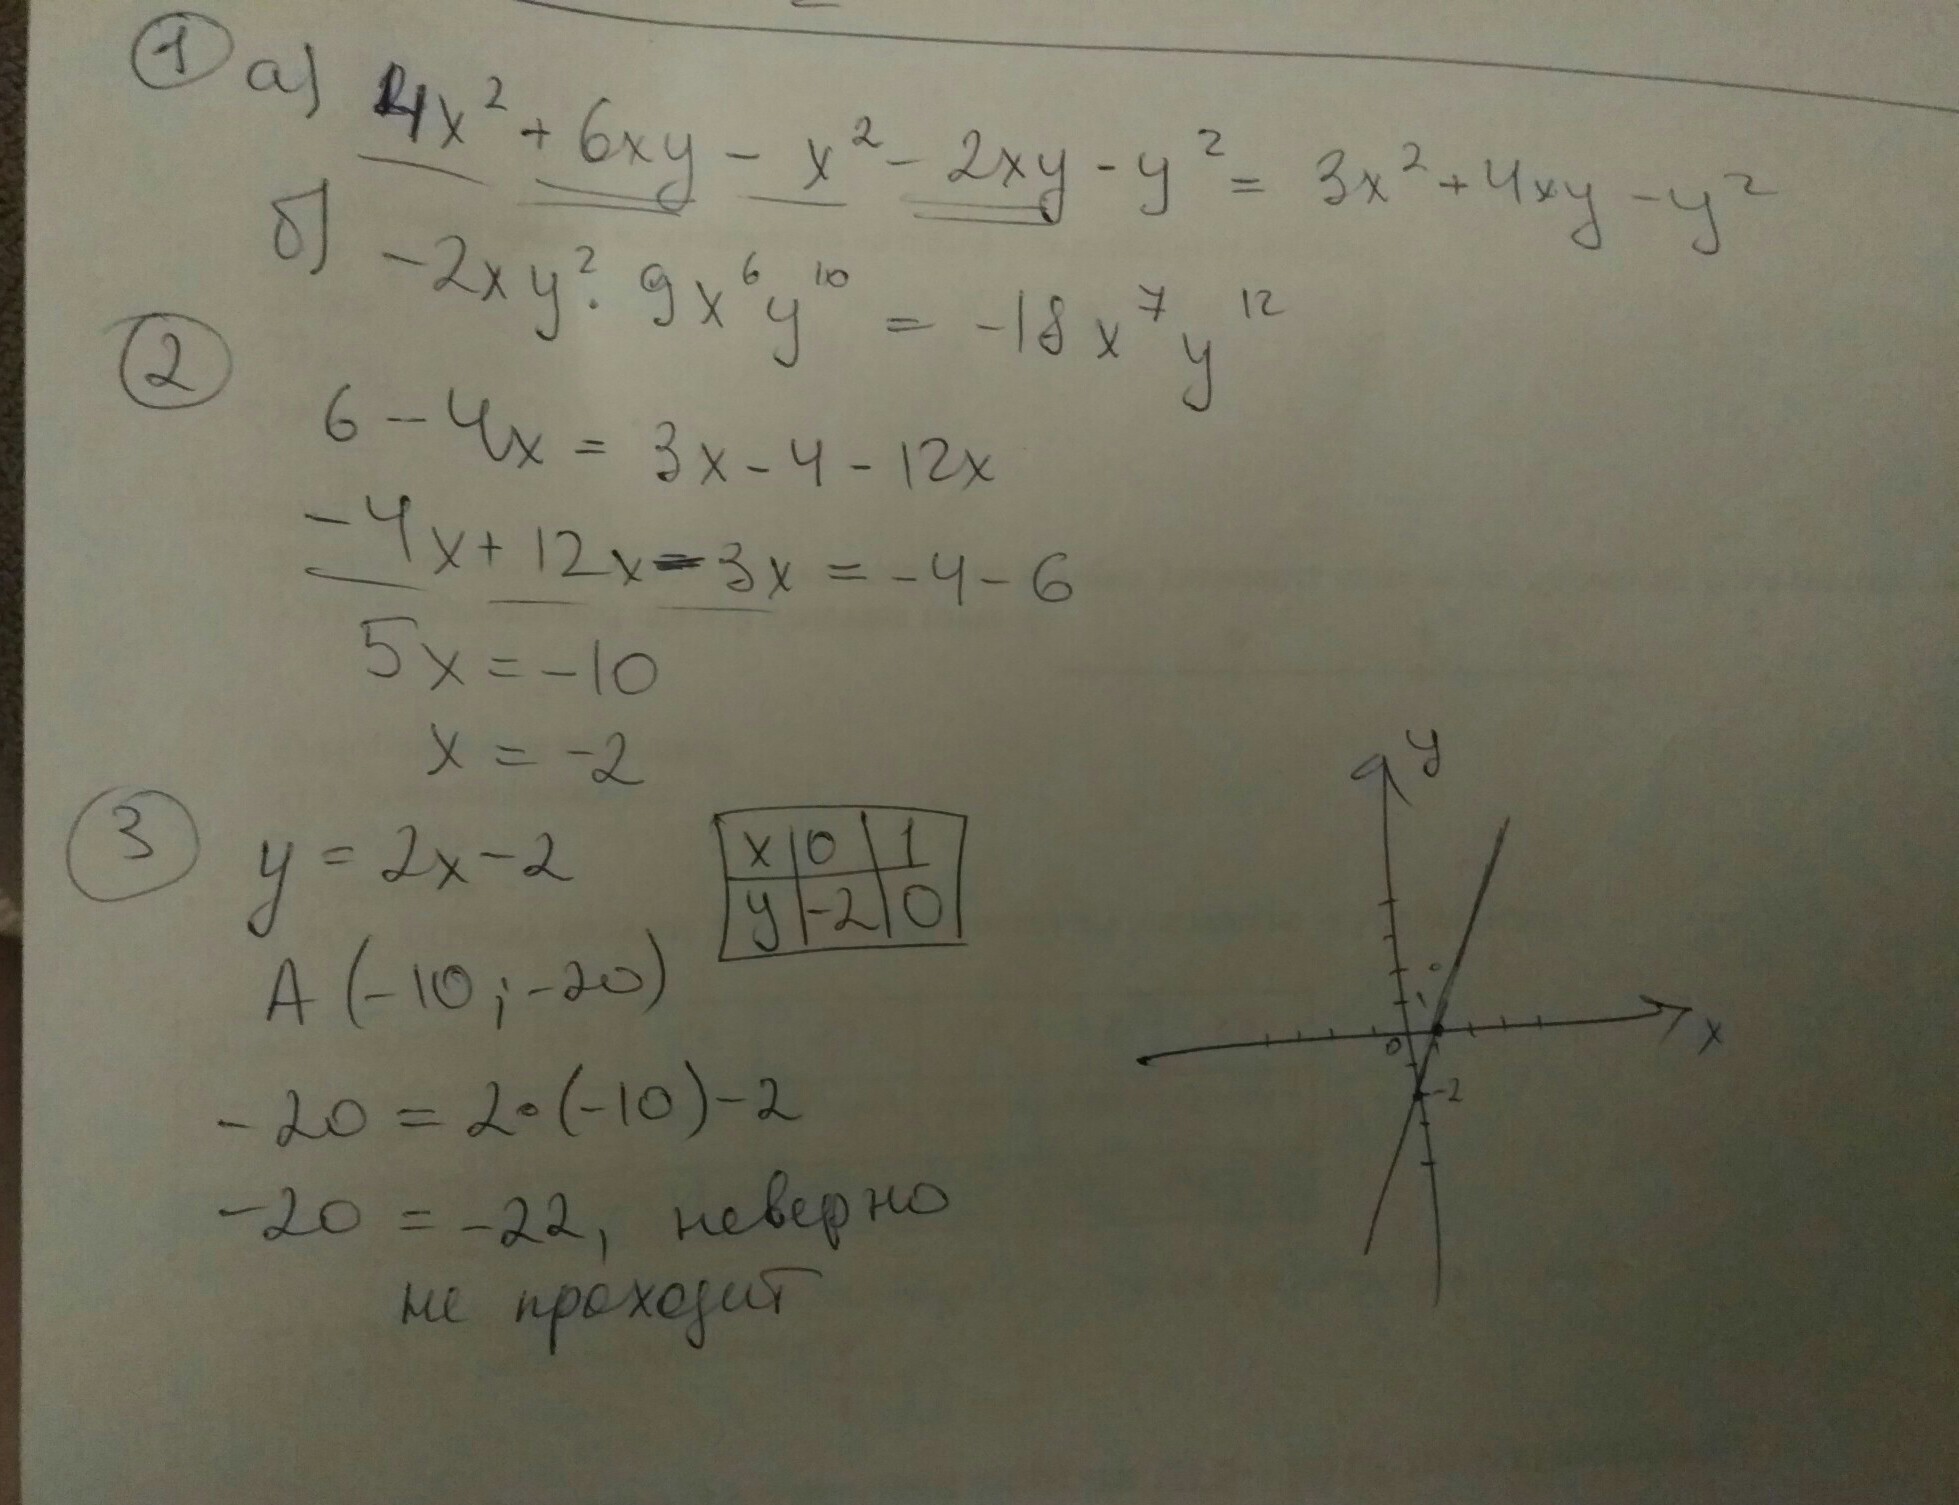 1 а) 4x² + 6xy - x² - 2xy - y² = 3x² + 4xy - y²
б) -2xy² · 9x⁶y¹⁰ = -18x⁷y¹²
2
6 - 4x = 3x - 4 - 12x
-4x + 12x - 3x = -4 - 6
5x = -10
x = -2
3 y = 2x - 2
x 0 1
y -2 0
A (-10; -20)
-20 = 2·(-10) - 2
-20 = -22, неверно
не проходит
y
x
0
1
-2